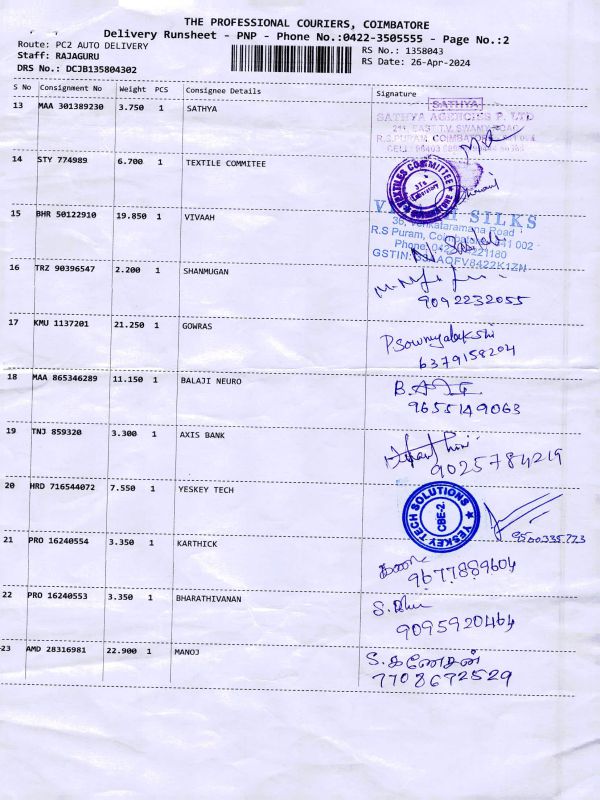 THE PROFESSIONAL COURIERS, COIMBATORE
Delivery Runsheet - PNP - Phone No.:0422-3505555 - Page No.:2
Route: PC2 AUTO DELIVERY
RS No.: 1358043
Staff: RAJAGURU
RS Date: 26-Apr-2024
DRS No.: DCJB135804302
S No Consignment No Weight PCS Consignee Details Signature
13 MAA 301389230 3.750 1 SATHYA
SATHYA
SATHYA AGENCIES P. LTD
R.S.PURAM, COIMBATORE
14 STY 774989 6.700 1 TEXTILE COMMITEE
TEXTILES COMMITTEE
Laboratory
15 BHR 50122910 19.850 1 VIVAAH
SILKS
36, Venkataramana Road
R.S Puram, 641 002
Phone: 221180
16 TRZ 90396547 2.200 1 SHANMUGAN
9092232055
17 KMU 1137201 21.250 1 GOWRAS
P.Sowmyalakshi
6379158204
18 MAA 865346289 11.150 1 BALAJI NEURO
9655149063
19 TNJ 859320 3.300 1 AXIS BANK
9025784219
20 HRD 716544072 7.550 1 YESKEY TECH
YESKEY TECH SOLUTIONS
CBE-2.
21 PRO 16240554 3.350 1 KARTHICK
9677889604
22 PRO 16240553 3.350 1 BHARATHIVANAN
9095920464
23 AMD 28316981 22.900 1 MANOJ
S.கணேசன்
7708672529